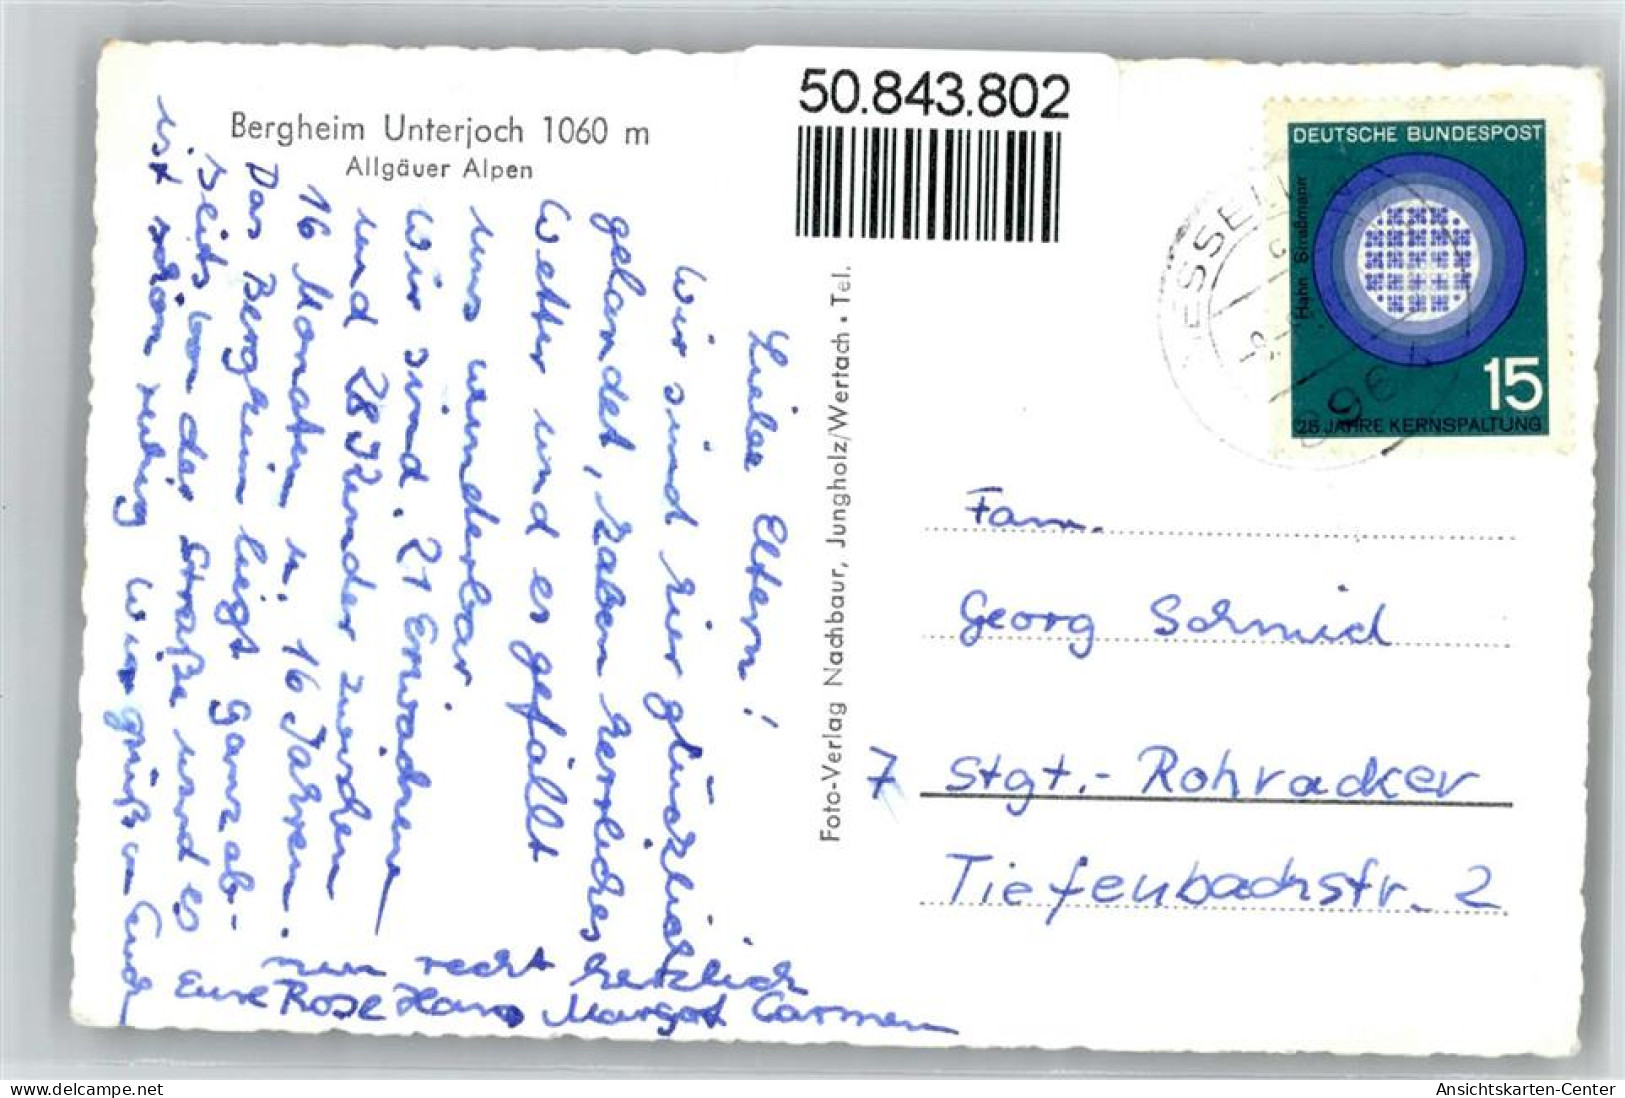 50.843.802
Bergheim Unterjoch 1060 m
Allgäuer Alpen
Liebe Eltern!
Wir sind hier glücklich
gelandet, haben herrliches
Wetter und es gefällt
uns wunderbar.
Wir sind. 21 Erwachsene
und 28 Kinder zwischen
16 Monaten u. 16 Jahren.
Das Bergheim liegt ganz ab-
seits von der Straße und es
ist schön ruhig Wir grüßen Euch
nun recht herzlich
Eure Rose Hans Margot Carmen
Foto-Verlag Nachbaur, Jungholz/Wertach • Tel.
DEUTSCHE BUNDESPOST
Hahn Straßmann
15
25 JAHRE KERNSPALTUNG
896
Fam.
Georg Schmid
7 Stgt.- Rohracker
Tiefenbachstr. 2
Ansichtskarten-Center